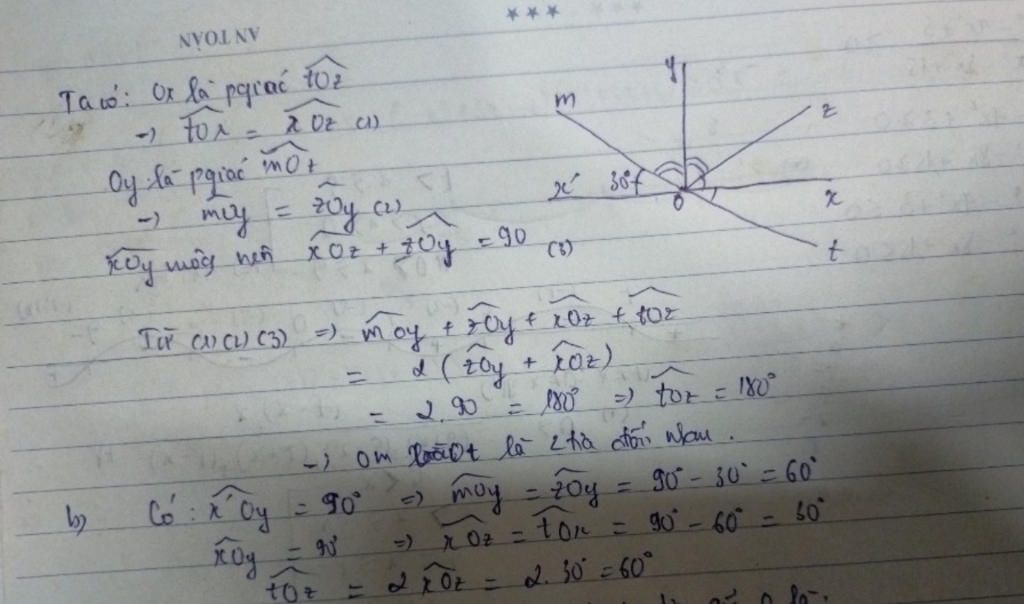 AN TOÀN
Ta có: Ox là pgiác tOz
→ tOx = xOz (1)
Oy là pgiác mOt
→ mOy = zOy (2)
xOy vuông nên xOz + zOy = 90 (3)
y
m
z
x'
30°
O
x
t
Từ (1) (2) (3) => mOy + zOy + xOz + tOz
= 2 (zOy + xOz)
= 2.90 = 180° => tOz = 180°
→ Om Ot là 2 tia đối nhau.
b) Có: x'Oy = 90° => mOy = zOy = 90° - 30° = 60°
xOy = 90° => xOz = tOx = 90° - 60° = 30°
tOz = 2 xOz = 2.30° = 60°